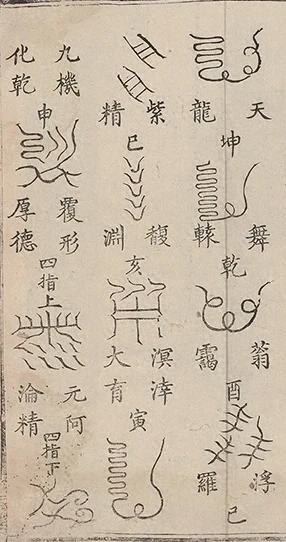 天龍
坤
舞轅
乾
翁
酉
浮羅
巳
紫精
巳
馥淵
亥
溟涬大育
寅
九機化乾
申
覆形厚德
四指上
元阿淪精
四指下